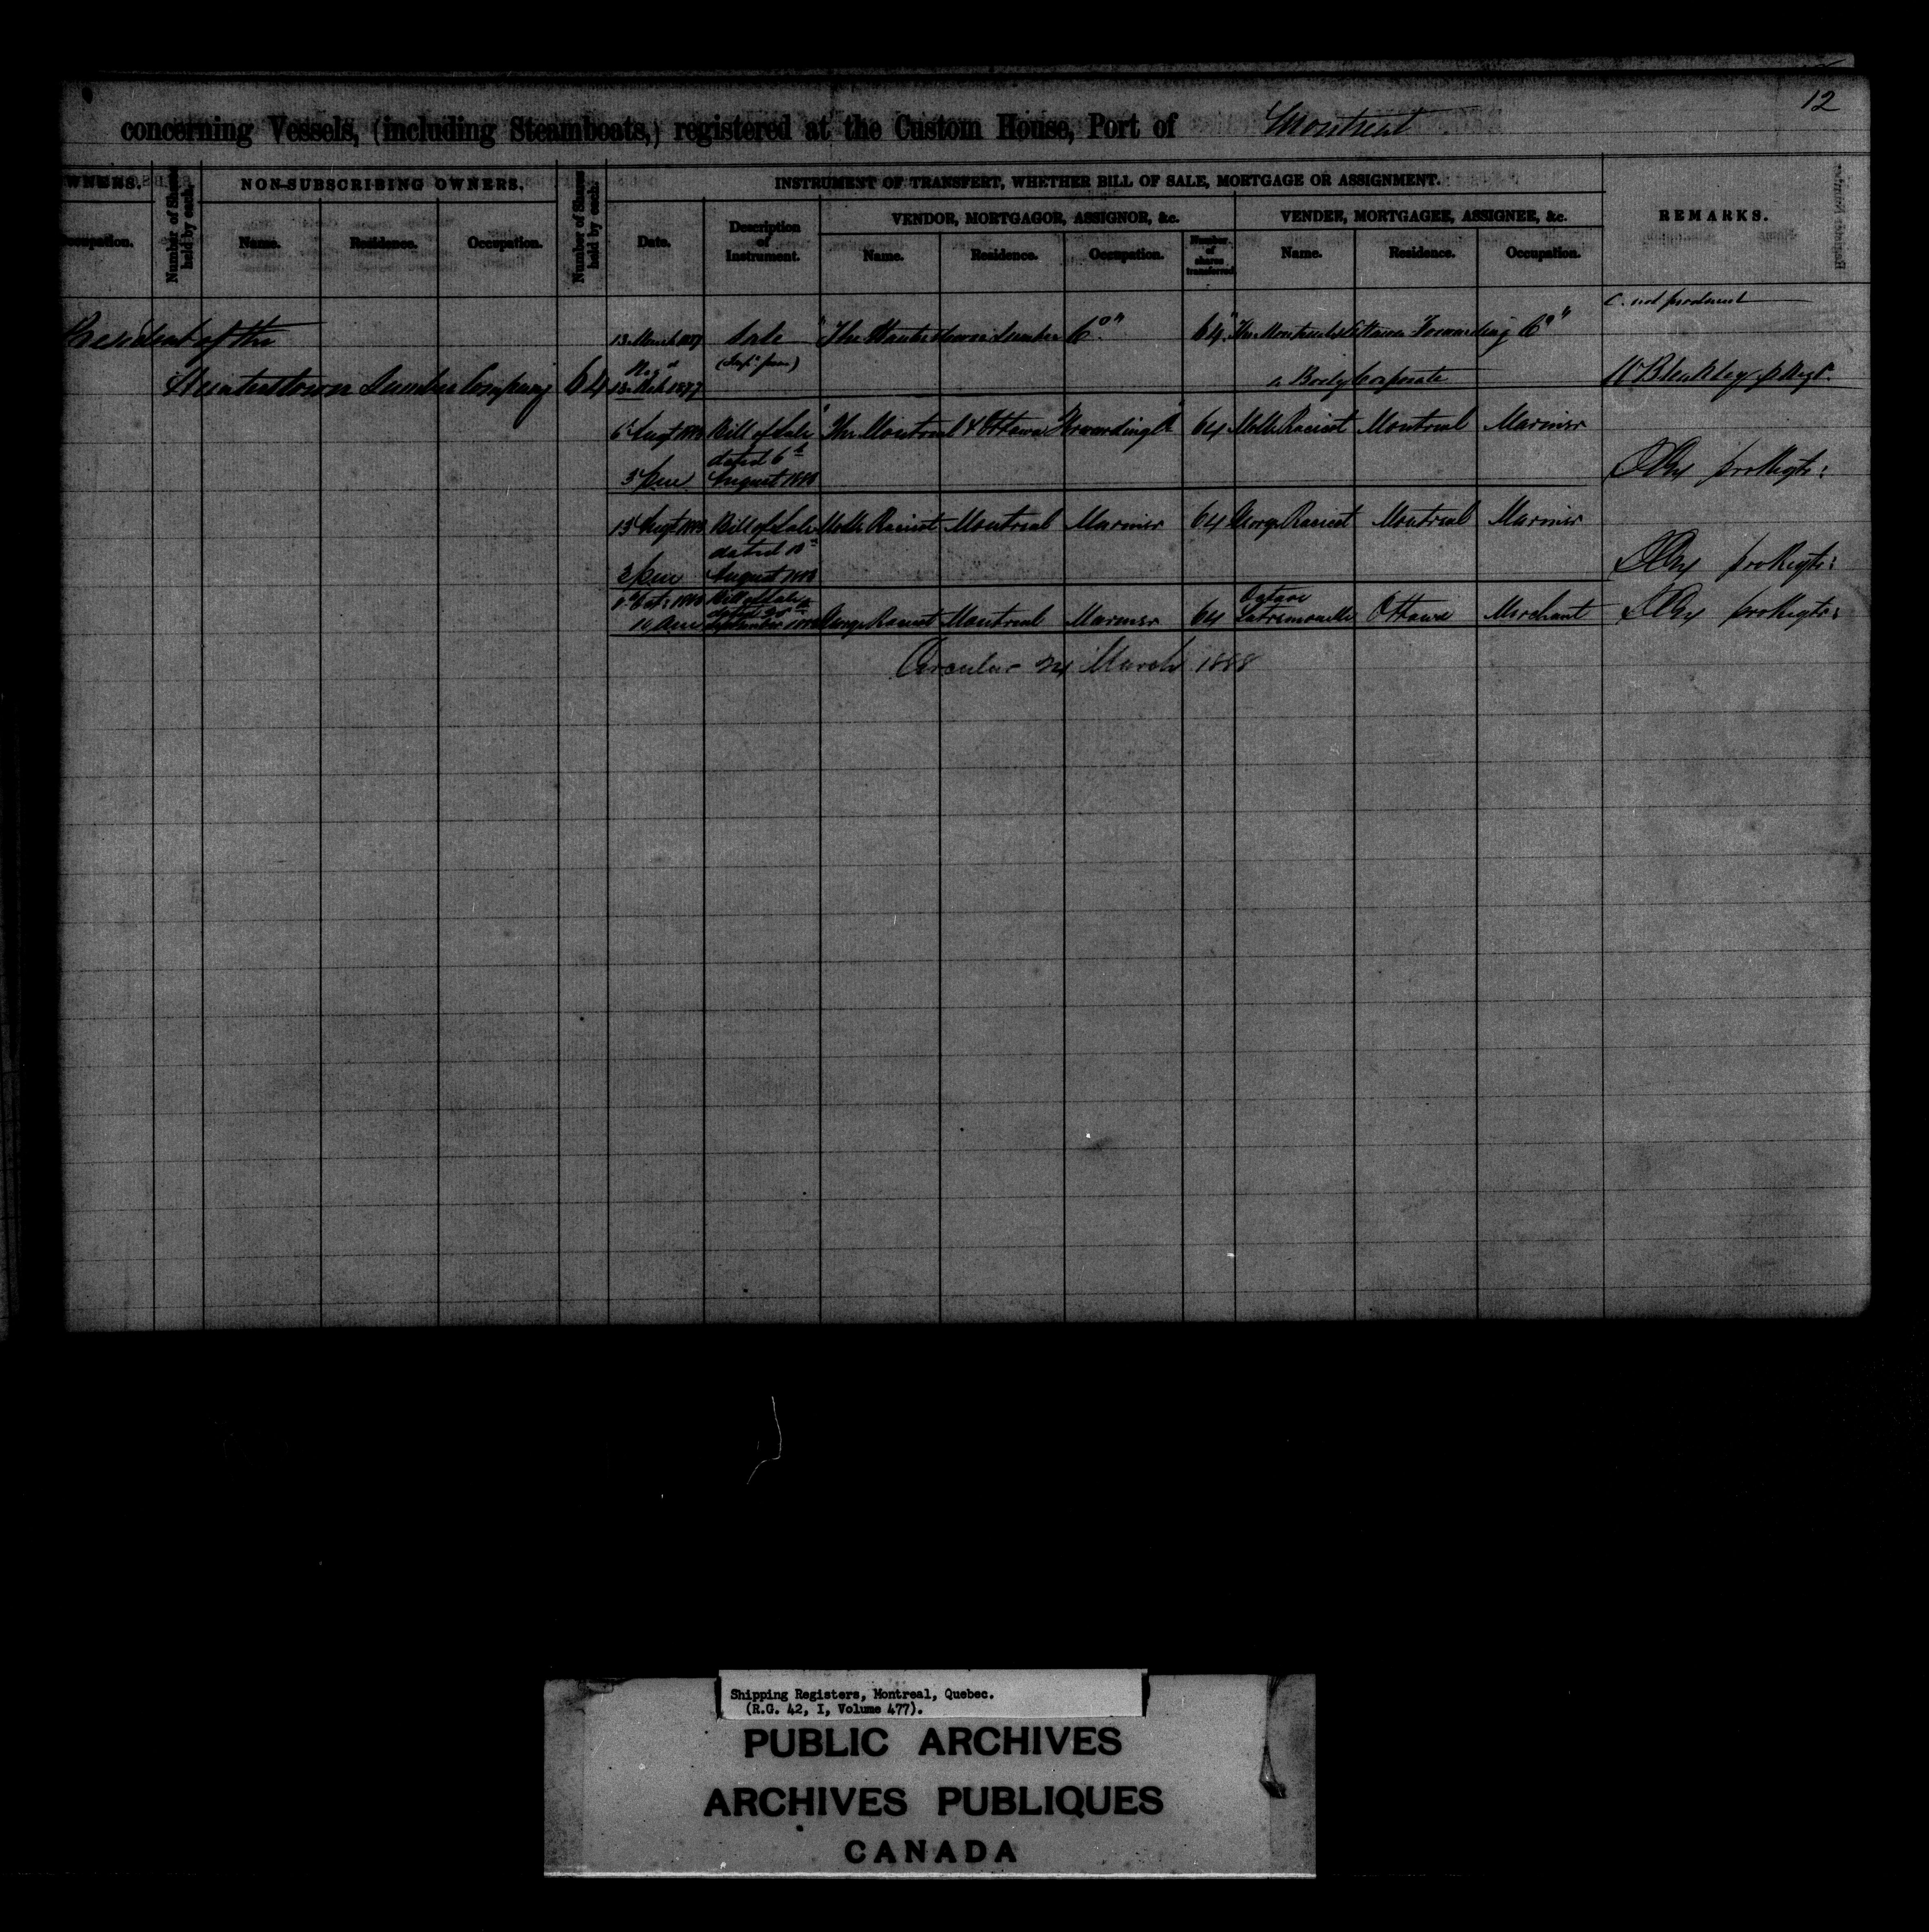 12
concerning Vessels, (including Steamboats,) registered at the Custom House, Port of Montreal
WNERS.
Number of Shares held by each.
NON-SUBSCRIBING OWNERS.
Number of Shares held by each.
INSTRUMENT OF TRANSFERT, WHETHER BILL OF SALE, MORTGAGE OR ASSIGNMENT.
REMARKS.
VENDOR, MORTGAGOR, ASSIGNOR, &c.
VENDEE, MORTGAGEE, ASSIGNEE, &c.
ccupation.
Name.
Residence.
Occupation.
Date.
Description of Instrument.
Name.
Residence.
Occupation.
Number of shares transferred
Name.
Residence.
Occupation.
C. not produced
President of the
13 March 1877 Sale "The Hunterstown Lumber Co" 64 "The Montreal & Ottawa Forwarding Co"
Hunterstown Lumber Company 64
13 Mch 1877
a Body Corporate
W Bleakley
6 Augt Bill of Sale "The Montreal & Ottawa Forwarding Co" 64 Racicot Montreal Mariner
dated 6th
August
pro Regtr:
Augt Bill of Sale Racicot Montreal Mariner 64 George Racicot Montreal Mariner
dated
August
pro Regtr:
Bill of Sale
dated
September George Racicot Montreal Mariner 64 Octave Latremouille Ottawa Merchant pro Regtr:
Circular 24 March 1888
Shipping Registers, Montreal, Quebec.
(R.G. 42, I, Volume 477).
PUBLIC ARCHIVES
ARCHIVES PUBLIQUES
CANADA